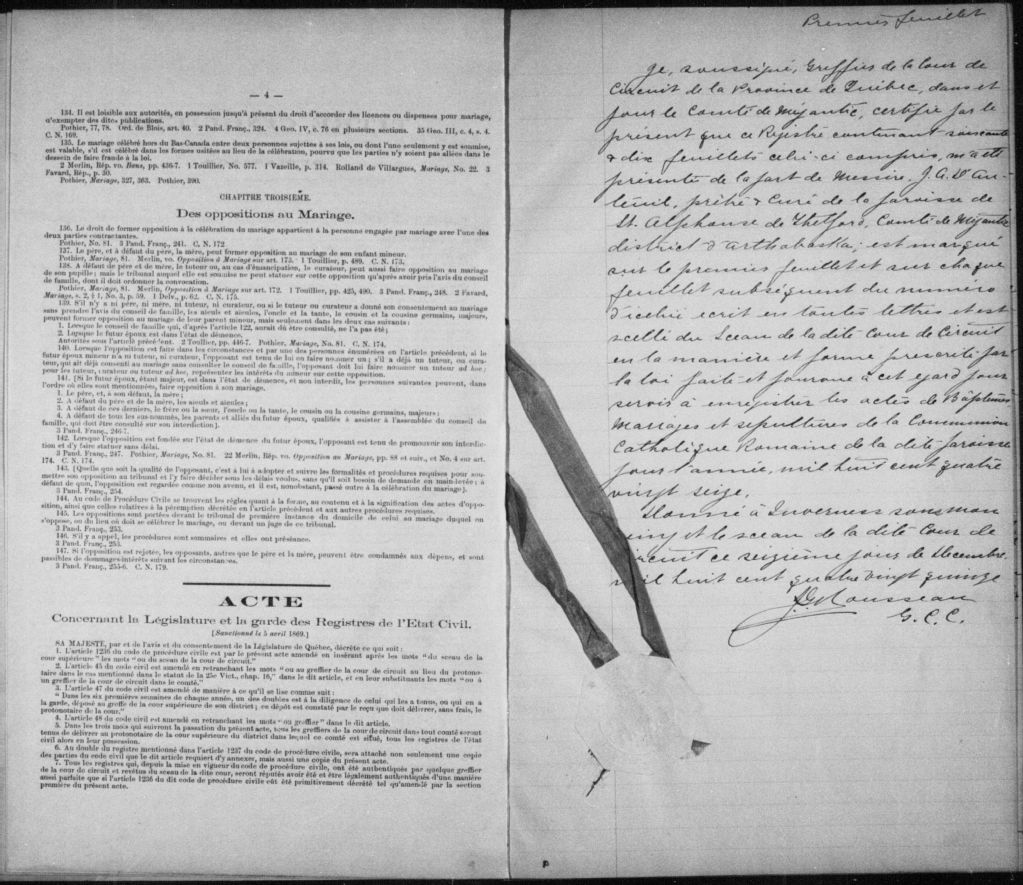 — 4 —
134. Il est loisible aux autorités, en possession jusqu'à présent du droit d'accorder des licences ou dispenses pour mariage,
d'exempter des dites publications.
Pothier, 77, 78. Ord. de Blois, art. 40. 2 Pand. Franç., 324. 4 Geo. IV, c. 76 en plusieurs sections. 35 Geo. III, c. 4, s. 4.
C. N. 169.
135. Le mariage célébré hors du Bas-Canada entre deux personnes sujettes à ses lois, ou dont l'une seulement y est soumise,
est valable, s'il est célébré dans les formes usitées au lieu de la célébration, pourvu que les parties n'y soient pas allées dans le
dessein de faire fraude à la loi.
2 Merlin, Rép. vo. Bans, pp. 436-7. 1 Touillier, No. 577. 1 Vazeille, p. 314. Rolland de Villargues, Mariage, No. 22. 3
Favard, Rép., p. 30.
Pothier, Mariage, 327, 363. Pothier, 390.
CHAPITRE TROISIÈME.
Des oppositions au Mariage.
136. Le droit de former opposition à la célébration du mariage appartient à la personne engagée par mariage avec l'une des
deux parties contractantes.
Pothier, No. 81. 3 Pand. Franç., 241. C. N. 172
137. Le père, et à défaut du père, la mère, peut former opposition au mariage de son enfant mineur.
Pothier, Mariage, 81. Merlin, vo. Opposition à Mariage sur art. 173. 1 Touillier, p. 489. C. N. 173,
138. A défaut de père et de mère, le tuteur ou, au cas d'émancipation, le curateur, peut aussi faire opposition au mariage
de son pupille; mais le tribunal auquel elle est soumise ne peut statuer sur cette opposition qu'après avoir pris l'avis du conseil
de famille, dont il doit ordonner la convocation.
Pothier, Mariage, 81. Merlin, Opposition à Mariage sur art. 172. 1 Touillier, pp. 425, 490. 3 Pand. Franç., 248. 2 Favard,
Mariage, s. 2, § 1, No. 3, p. 59. 1 Delv., p. 62. C. N. 175.
139. S'il n'y a ni père, ni mère, ni tuteur, ni curateur, ou si le tuteur ou curateur a donné son consentement au mariage
sans prendre l'avis du conseil de famille, les aïeuls et aïeules, l'oncle et la tante, le cousin et la cousine germains, majeurs,
peuvent former opposition au mariage de leur parent mineur, mais seulement dans les deux cas suivants:
1. Lorsque le conseil de famille qui, d'après l'article 122, aurait dû être consulté, ne l'a pas été;
2. Lorsque le futur époux est dans l'état de démence.
Autorités sous l'article précédent. 2 Toullier, pp. 446-7. Pothier, Mariage, No. 81. C. N. 174.
140. Lorsque l'opposition est faite dans les circonstances et par une des personnes énumérées en l'article précédent, si le
futur époux mineur n'a ni tuteur, ni curateur, l'opposant est tenu de lui en faire nommer un; s'il a déjà un tuteur, ou cura-
teur, qui ait déjà consenti au mariage sans consulter le conseil de famille, l'opposant doit lui faire nommer un tuteur ad hoc;
pour les tuteur, curateur ou tuteur ad hoc, représenter les intérêts du mineur sur cette opposition.
141. [Si le futur époux, étant majeur, est dans l'état de démence, et non interdit, les personnes suivantes peuvent, dans
l'ordre où elles sont mentionnées, faire opposition à son mariage.
1. Le père, et, à son défaut, la mère;
2. A défaut du père et de la mère, les aïeuls et aïeules;
3. A défaut de ces derniers, le frère ou la sœur, l'oncle ou la tante, le cousin ou la cousine germains, majeurs;
4. A défaut de tous les sus-nommés, les parents et alliés du futur époux, qualifiés à assister à l'assemblée du conseil de
famille, qui doit être consulté sur son interdiction].
3 Pand. Franç., 246-7.
142. Lorsque l'opposition est fondée sur l'état de démence du futur époux, l'opposant est tenu de promouvoir son interdic-
tion et d'y faire statuer sans délai.
3 Pand. Franç., 247. Pothier, Mariage, No. 81. 22 Merlin, Rép. vo. Opposition au Mariage, pp. 88 et suiv., et No. 4 sur art.
174. C. N. 174.
143. [Quelle que soit la qualité de l'opposant, c'est à lui à adopter et suivre les formalités et procédures requises pour sou-
mettre son opposition au tribunal et l'y faire décider sous les délais voulus, sans qu'il soit besoin de demande en main-levée; à
défaut de quoi, l'opposition est regardée comme non avenu, et il est, nonobstant, passé outre à la célébration du mariage].
3 Pand. Franç., 254.
144. Au code de Procédure Civile se trouvent les règles quant à la forme, au contenu et à la signification des actes d'oppo-
sition, ainsi que celles relatives à la péremption décrétée en l'article précédent et aux autres procédures requises.
145. Les oppositions sont portées devant le tribunal de première instance du domicile de celui au mariage duquel on
s'oppose, ou du lieu où doit se célébrer le mariage, ou devant un juge de ce tribunal.
3 Pand. Franç., 253.
146. S'il y a appel, les procédures sont sommaires et elles ont préséance.
3 Pand. Franç., 255.
147. Si l'opposition est rejetée, les opposants, autres que le père et la mère, peuvent être condamnés aux dépens, et sont
passibles de dommages-intérêts suivant les circonstances.
3 Pand. Franç., 255-6. C. N. 179.
ACTE
Concernant la Législature et la garde des Registres de l'Etat Civil.
[Sanctionné le 5 avril 1869.]
SA MAJESTÉ, par et de l'avis et du consentement de la Législature de Québec, décrète ce qui suit:
1. L'article 1236 du code de procédure civile est par le présent acte amendé en insérant après les mots "du sceau de la
cour supérieure" les mots "ou du sceau de la cour de circuit."
2. L'article 45 du code civil est amendé en retranchant les mots "ou au greffier de la cour de circuit au lieu du protono-
taire dans le cas mentionné dans le statut de la 25e Vict., chap. 16," dans le dit article, et en leur substituant les mots "ou à
un greffier de la cour de circuit dans le comté."
3. L'article 47 du code civil est amendé de manière à ce qu'il se lise comme suit:
"Dans les six premières semaines de chaque année, un des doubles est à la diligence de celui qui les a tenus, ou qui en a
la garde, déposé au greffe de la cour supérieure de son district; ce dépôt est constaté par le reçu que doit délivrer, sans frais, le
protonotaire de la cour."
4. L'article 48 du code civil est amendé en retranchant les mots "ou greffier" dans le dit article.
5. Dans les trois mois qui suivront la passation du présent acte, tous les greffiers de la cour de circuit dans tout comté seront
tenus de délivrer au protonotaire de la cour supérieure du district dans lequel ce comté est situé, tous les registres de l'état
civil alors en leur possession.
6. Au double du registre mentionné dans l'article 1237 du code de procédure civile, sera attaché non seulement une copie
des parties du code civil que le dit article requiert d'y annexer, mais aussi une copie du présent acte.
7. Tous les registres qui, depuis la mise en vigueur du code de procédure civile, ont été authentiqués par quelque greffier
de la cour de circuit et revêtus du sceau de la dite cour, seront réputés avoir été et être légalement authentiqués d'une manière
aussi parfaite que si l'article 1236 du dit code de procédure civile eût été primitivement décrété tel qu'amendé par la section
première du présent acte.
Premier feuillet
Je, soussigné, Greffier de la Cour de
Circuit de la Province de Québec, dans et
pour le Comté de Mégantic, certifie par le
présent que ce Registre contenant soixante
& dix feuillets celui-ci compris, m'a été
présenté de la part de Messire, J. A. D'Au-
teuil, prêtre & Curé de la Paroisse de
St. Alphonse de Thetford, Comté de Mégantic
district d'Arthabaska; est marqué
sur le premier feuillet et sur chaque
feuillet subséquent du numéro
d'icelui écrit en toutes lettres et est
scellé du Sceau de la dite Cour de Circuit
en la manière et forme prescrite par
la loi faite et pourvue à cet égard pour
servir à enregistrer les actes de Baptêmes
Mariages et sépultures de la Communion
Catholique Romaine de la dite Paroisse
pour l'année, mil huit cent quatre
vingt seize.
Donné à Inverness sous mon
seing et le sceau de la dite Cour de
Circuit ce seizième jour de Décembre
mil huit cent quatre vingt quinze
J. G. Rousseau
G. C. C.